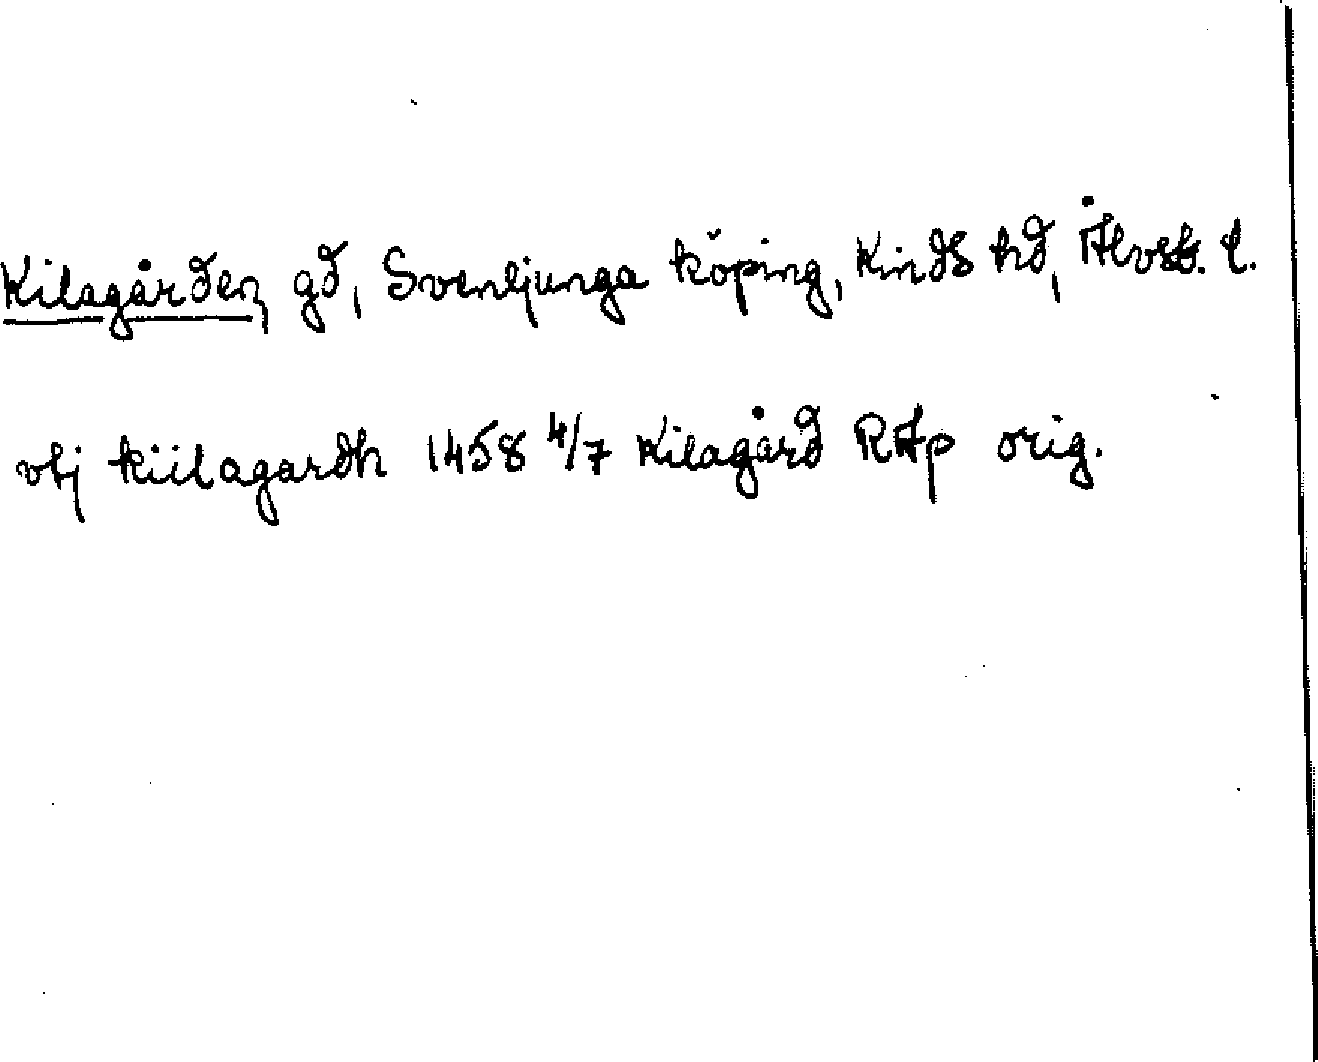 Kilagården, gd, Svenljunga köping, Kinds hd, Älvsb. l.
vtj kiilagardh 1458 4/7 Kilagård RAp orig.